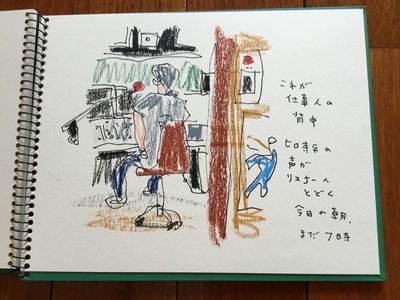 これが
仕事人の
背中
声が
リスナーへ
とどく
今日の朝、
まだ7時